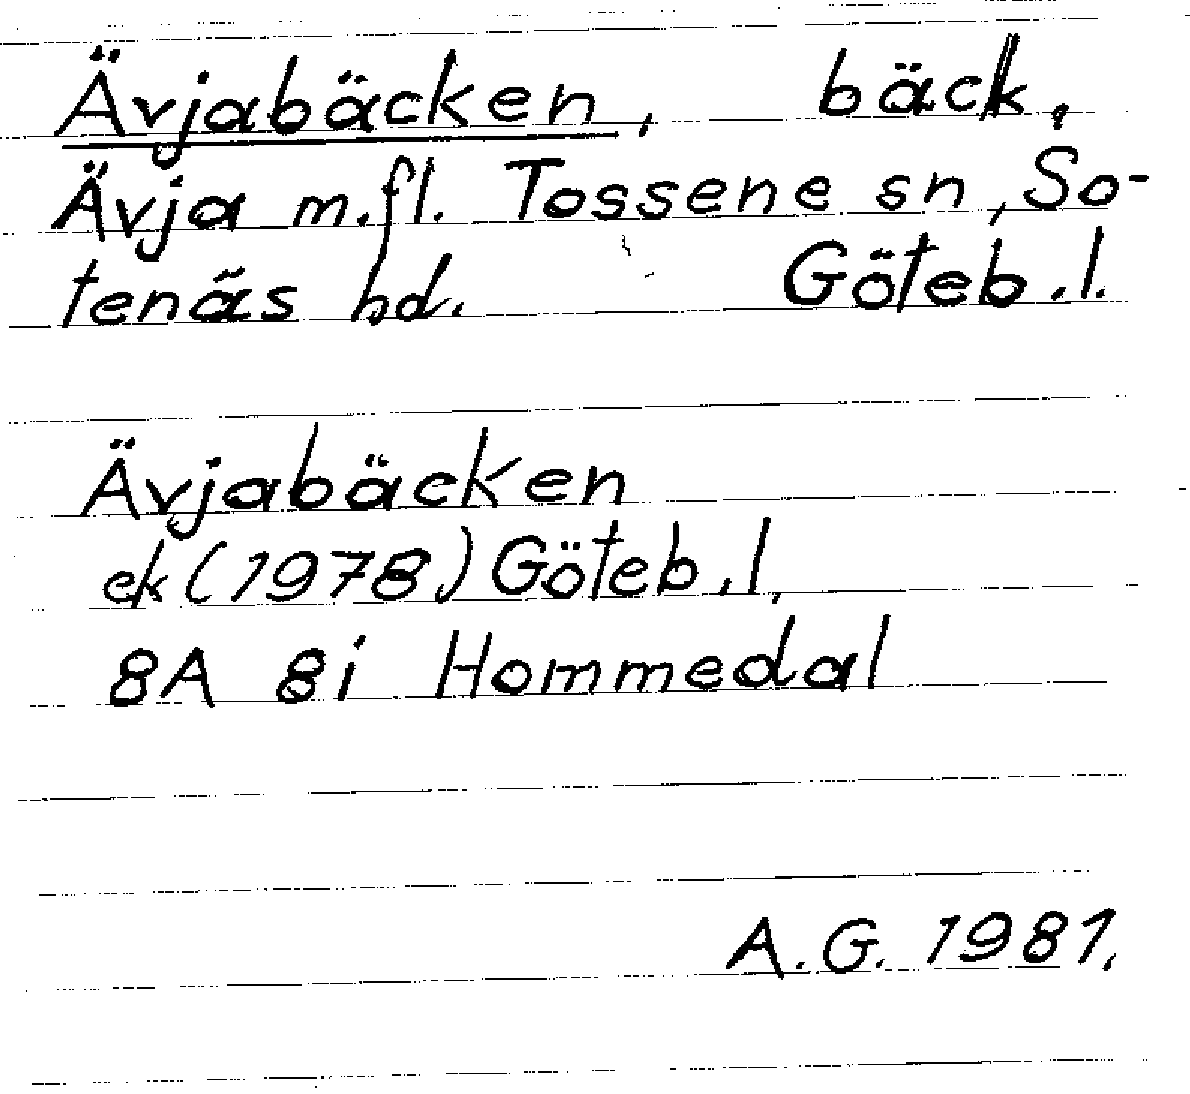 Ävjabäcken, bäck,
Ävja m.fl. Tossene sn, So-
tenäs hd. Göteb.l.
Ävjabäcken
ek (1978) Göteb.l,
8A 8i Hommedal
A.G. 1981.